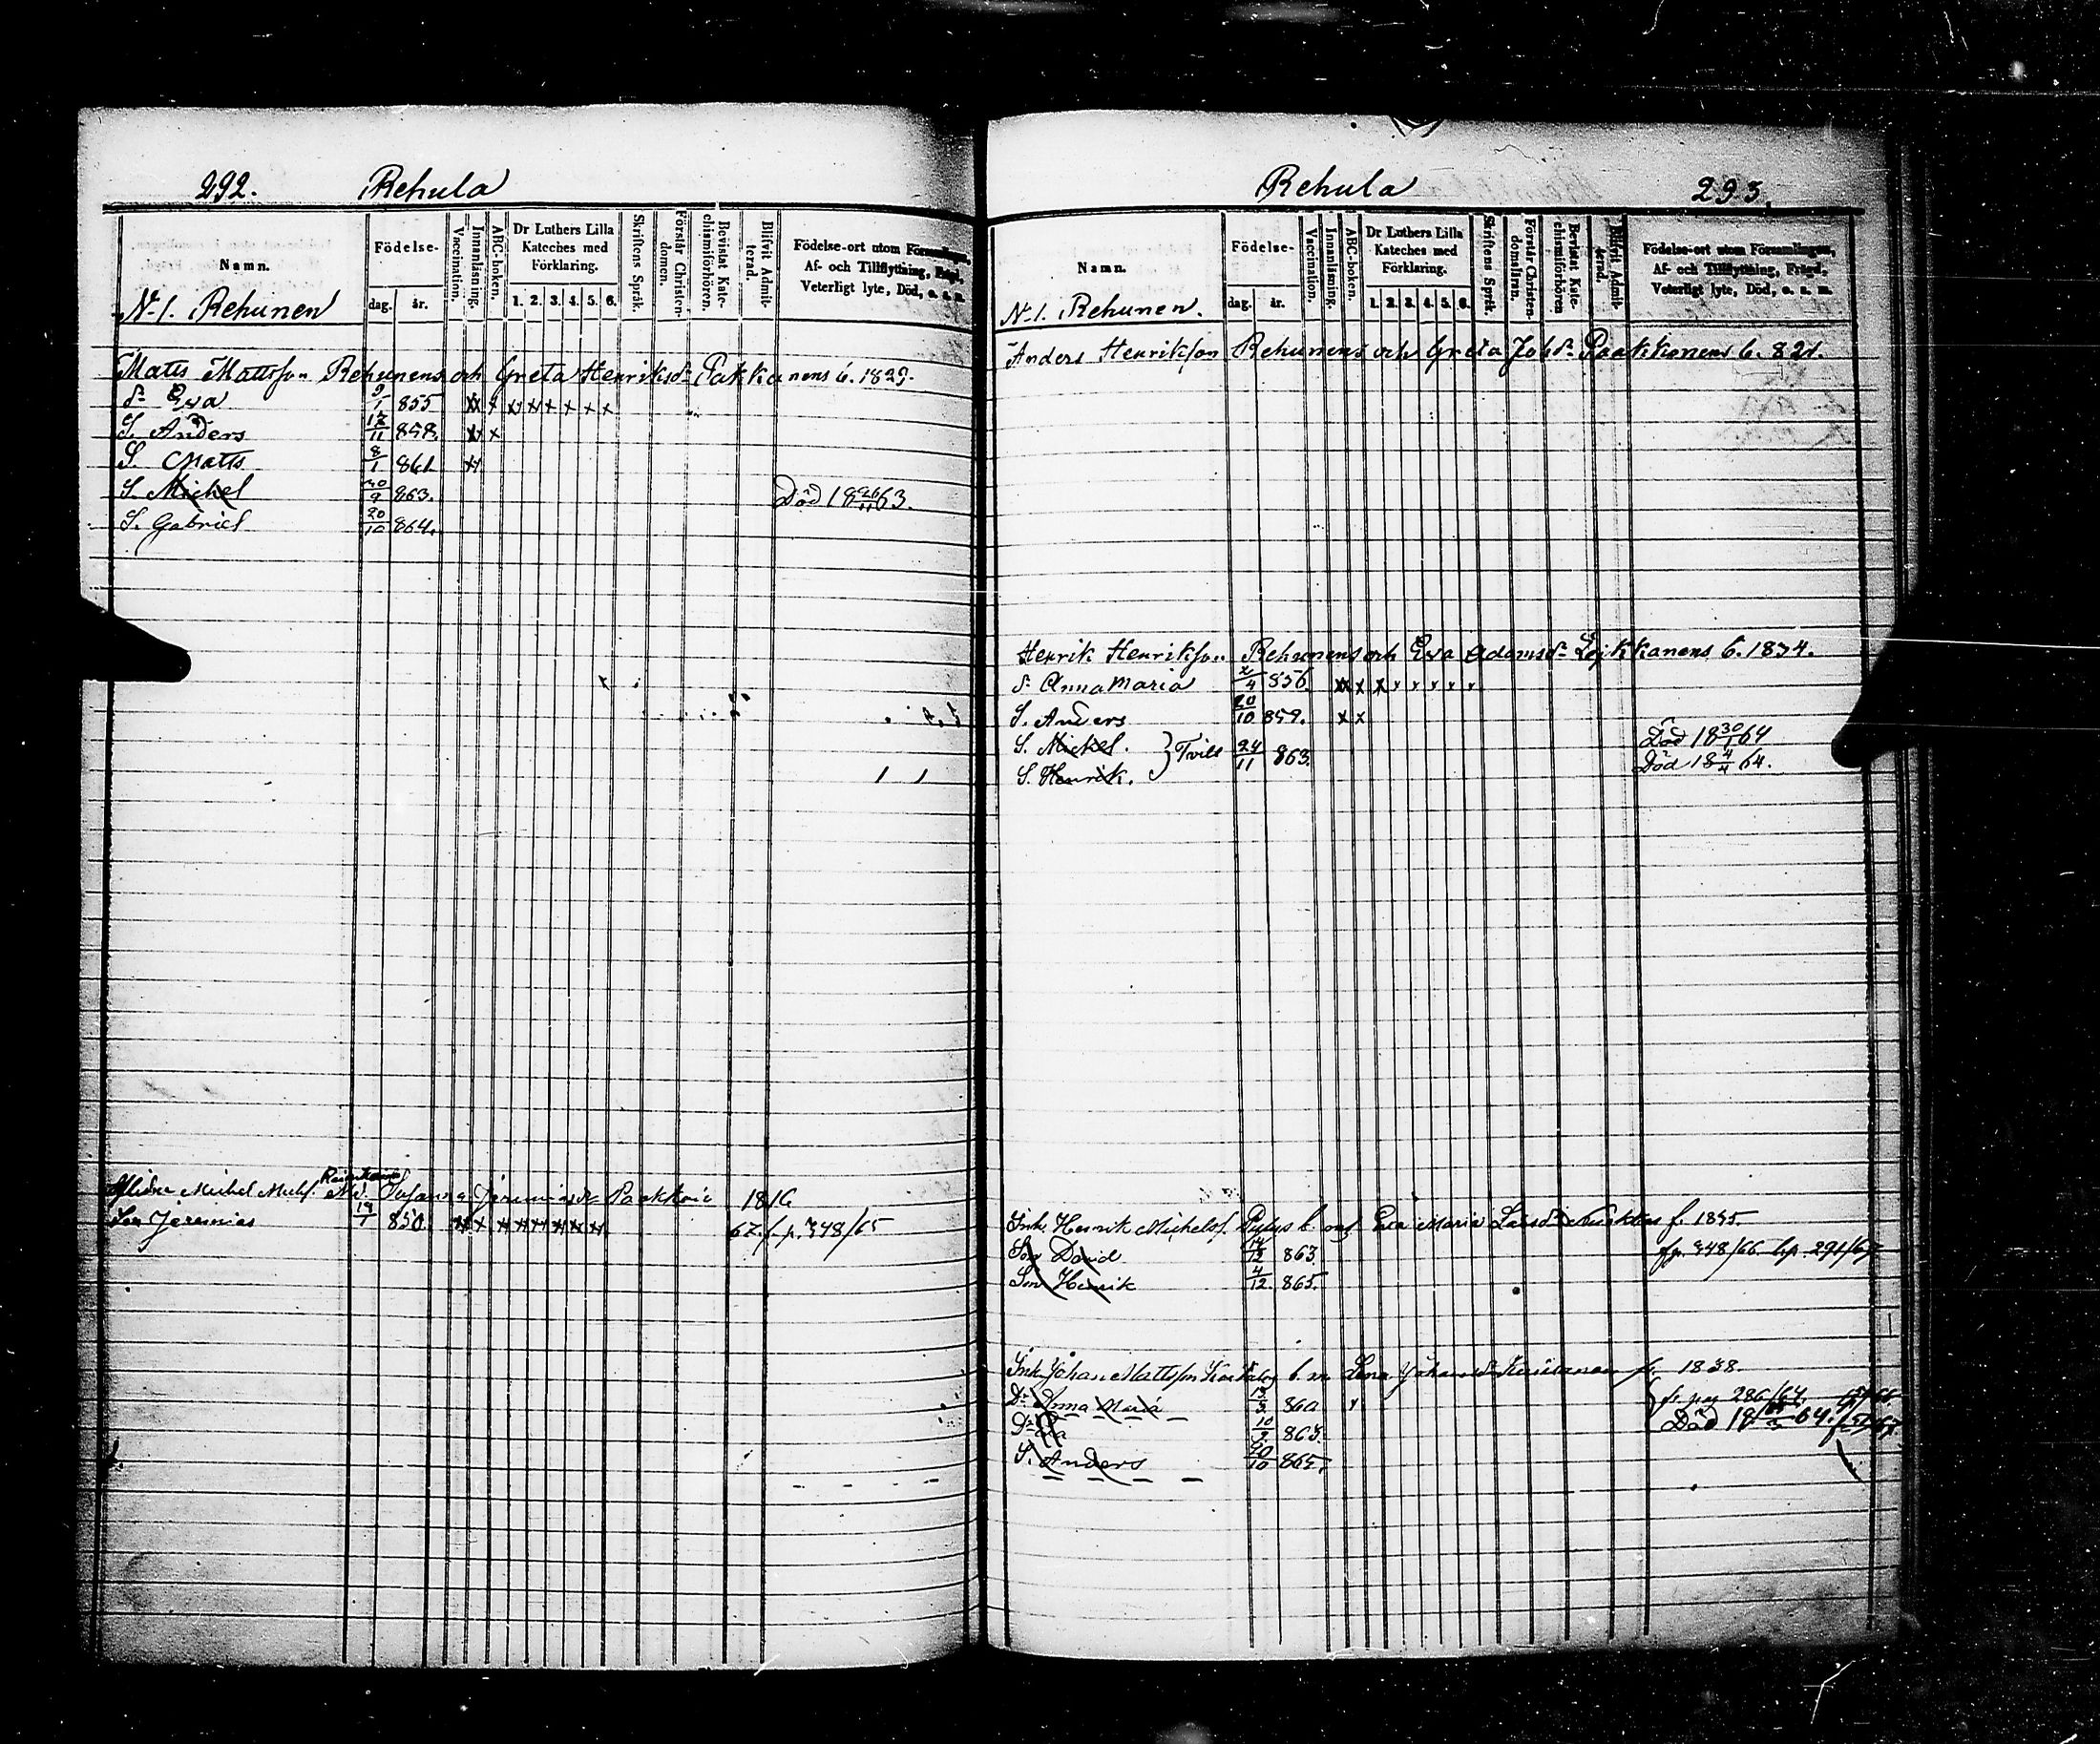 292. Rehula
Namn.
Födelse-
dag. år.
Vaccination.
Innanläsning.
ABC-boken.
Dr Luthers Lilla
Kateches med
Förklaring.
1. 2. 3. 4. 5. 6.
Skriftens Språk.
Förstår Christen-
domen.
Bevistat Kate-
chismiförhören.
Blifvit Admit-
terad.
Födelse-ort utom Församlingen,
Af- och Tillflyttning, Frägd,
Veterligt lyte, Död, o. s. m.
N-1. Rehunen
Matts Mattsson Rehunens och Greta Henriksd:r Pakkanens b. 1829.
d:r Eva 9/1 855 xx x xx xx x x x x
S. Anders 17/11 858. xx x
S. Matts 8/1 861 xx
S. Michel 30/9 863. Död 18 26/11 63.
S. Gabriel 20/10 864.
Michel Mich. Susanna Jeremiasd:r 1816
Son Jeremias 19/1 850. 348/65
Rehula 293.
Namn.
Födelse-
dag. år.
Vaccination.
Innanläsning.
ABC-boken.
Dr Luthers Lilla
Kateches med
Förklaring.
1. 2. 3. 4. 5. 6.
Skriftens Språk.
Förstår Christen-
domsläran.
Bevistat Kate-
chismiförhören
Blifvit Admit-
terad.
Födelse-ort utom Församlingen,
Af- och Tillflyttning, Frägd,
Veterligt lyte, Död, o. s. m.
N-1. Rehunen.
Anders Henrikson Rehunens och Greta Joh:d:r Paakkonens b. 821.
Henrik Henrikson Rehunens och Eva Adamsd:r b. 1834.
d:r Anna Maria 2/4 856. xx x x x x x x x
S. Anders 20/10 859. x x
S. Michel. } Tvill 24/11 863. Död 18 30/1 64
S. Henrik. Död 18 4/4 64.
Inh. Henrik Michelss. Eva Maria Larsd:r f. 1835.
Son David 14/12 863 348/66 291/67
Son Henrik 4/12 865.
Inh. Johan Mattsson Lena Johansd:r f. 1838.
D:r Anna Maria 860 x 286/64.
D:r Eva 863. Död 18 64.
S. Anders 20/10 865.